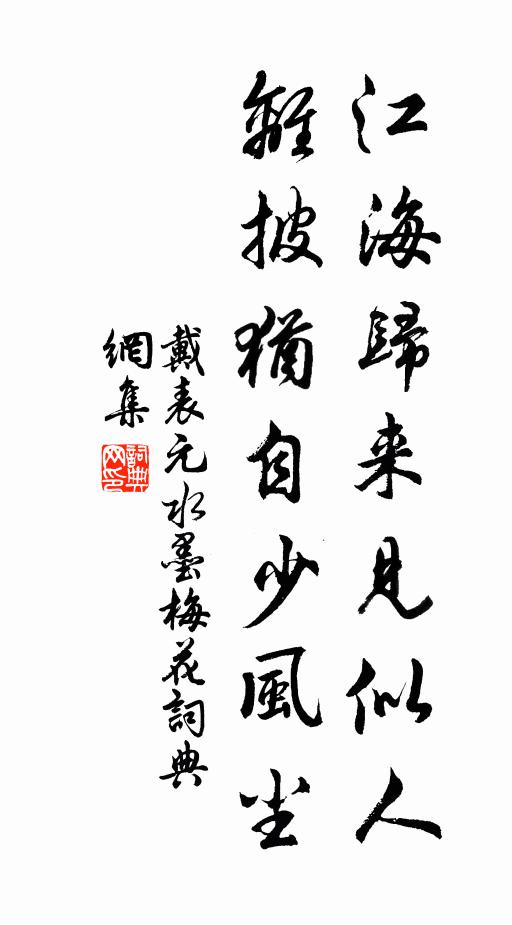 江海歸来見似人
離披猶自少風尘
戴表元水墨梅花詞典
網集
詞典
网印